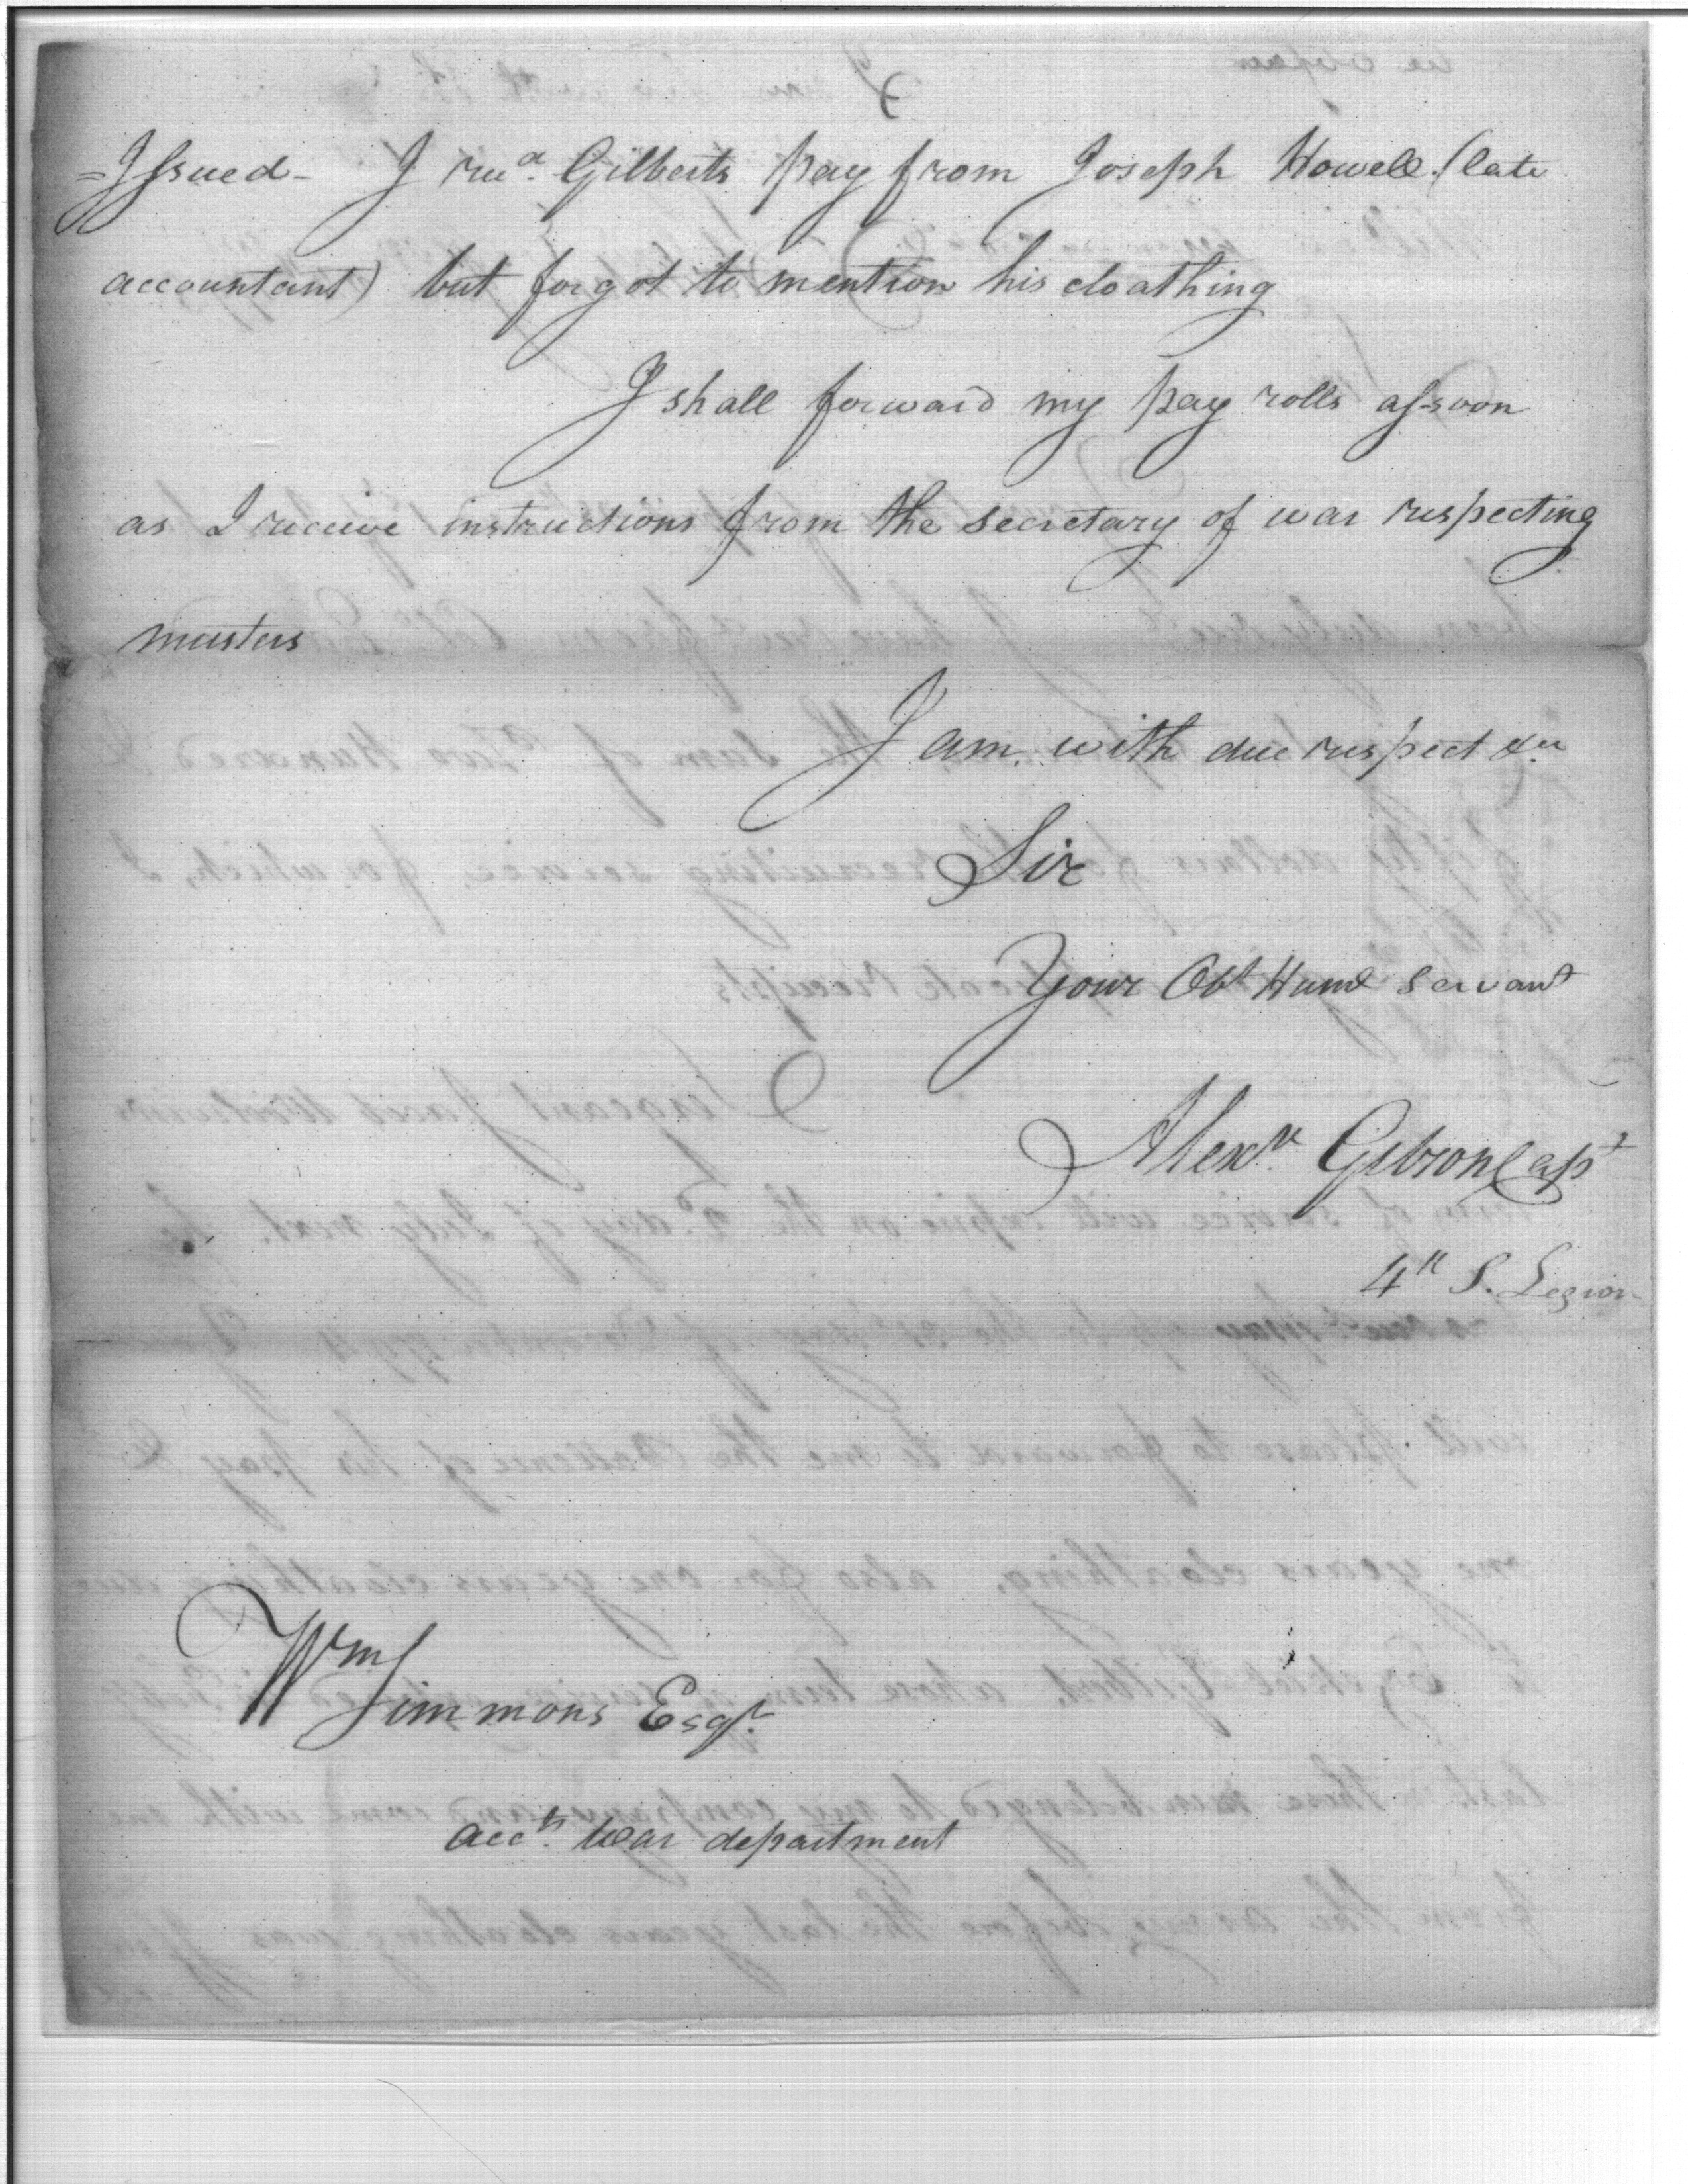 =Issued- I recd. Gilberts pay from Joseph Howell (late
accountant) but forgot to mention his cloathing
I shall forward my pay rolls assoon
as I receive instructions from the secretary of war respecting
musters
I am with due respect &c
Sir
Your Obt Huml Servant
Alexr. Gibson Capt
4th S. Legion
Wm Simmons Esqr.
acct. War department